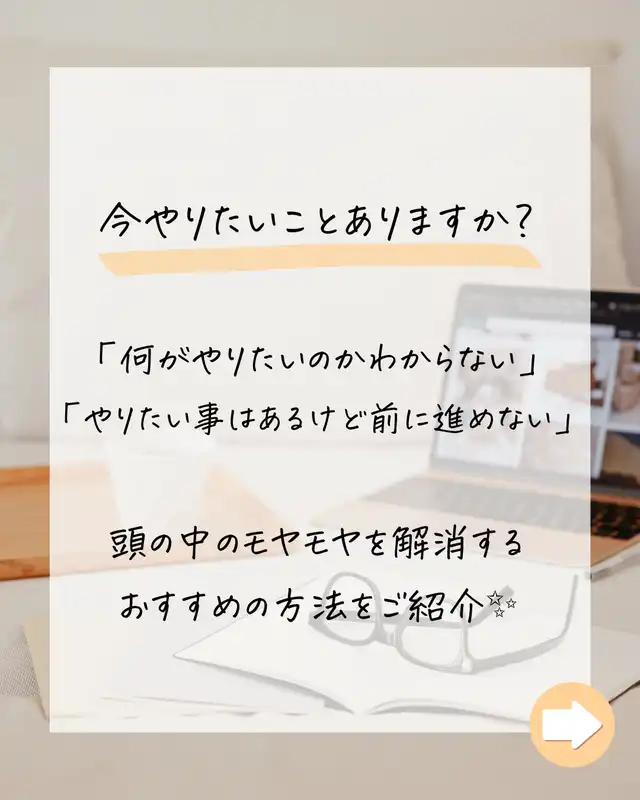 今やりたいことありますか?
「何がやりたいのかわからない」
「やりたい事はあるけど前に進めない」
頭の中のモヤモヤを解消する
おすすめの方法をご紹介✨